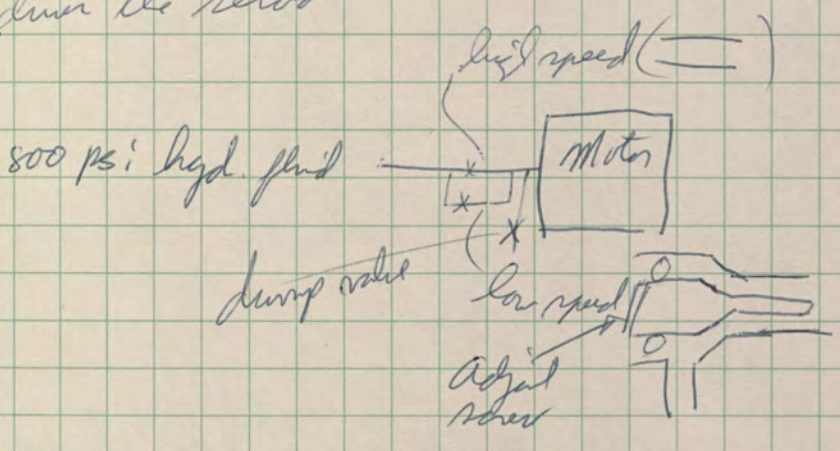 the servo
high speed ( )
800 psi hyd. fluid
Motor
dump valve
low speed
Adjust
screw